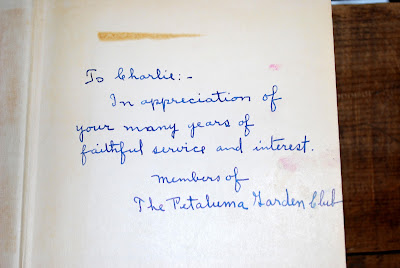 To Charlie:-
In appreciation of
your many years of
faithful service and interest.
members of
The Petaluma Garden Club